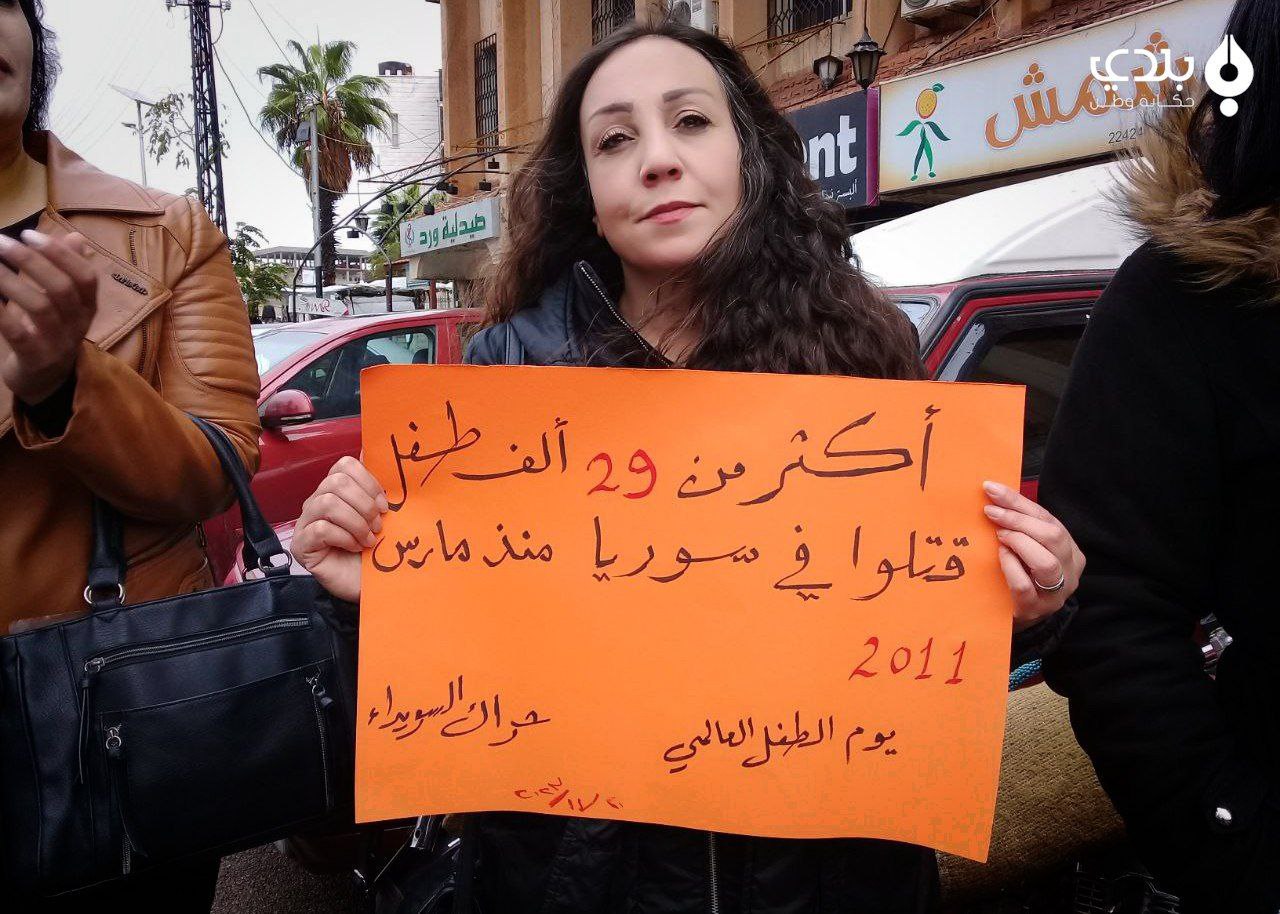 بلدي
حكاية وطن
شمش
22424
ent
صيدلية ورد
أكثر من 29 ألف طفل
قتلوا في سوريا منذ مارس
2011
يوم الطفل العالمي
حراك السويداء